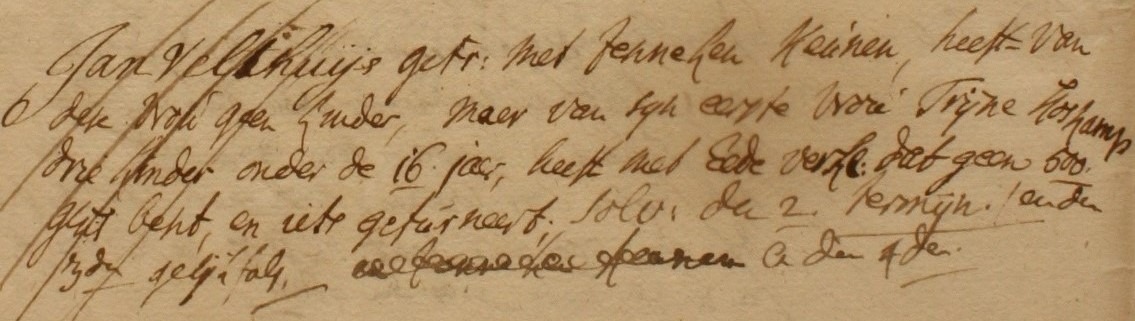 Jan Velthuijs getr: met Jenneken Keunen, heeft van
dese vrou geen kinder, maer van syn eerste vrou Trijne Hoskamp
drie kinder onder de 16. jaer, heeft met Eede verkl: dat geen 600.
gls besit, en iets gefurneert, Solv: den 2. Termijn. / en den
3den gelijkfals, en den 4den.